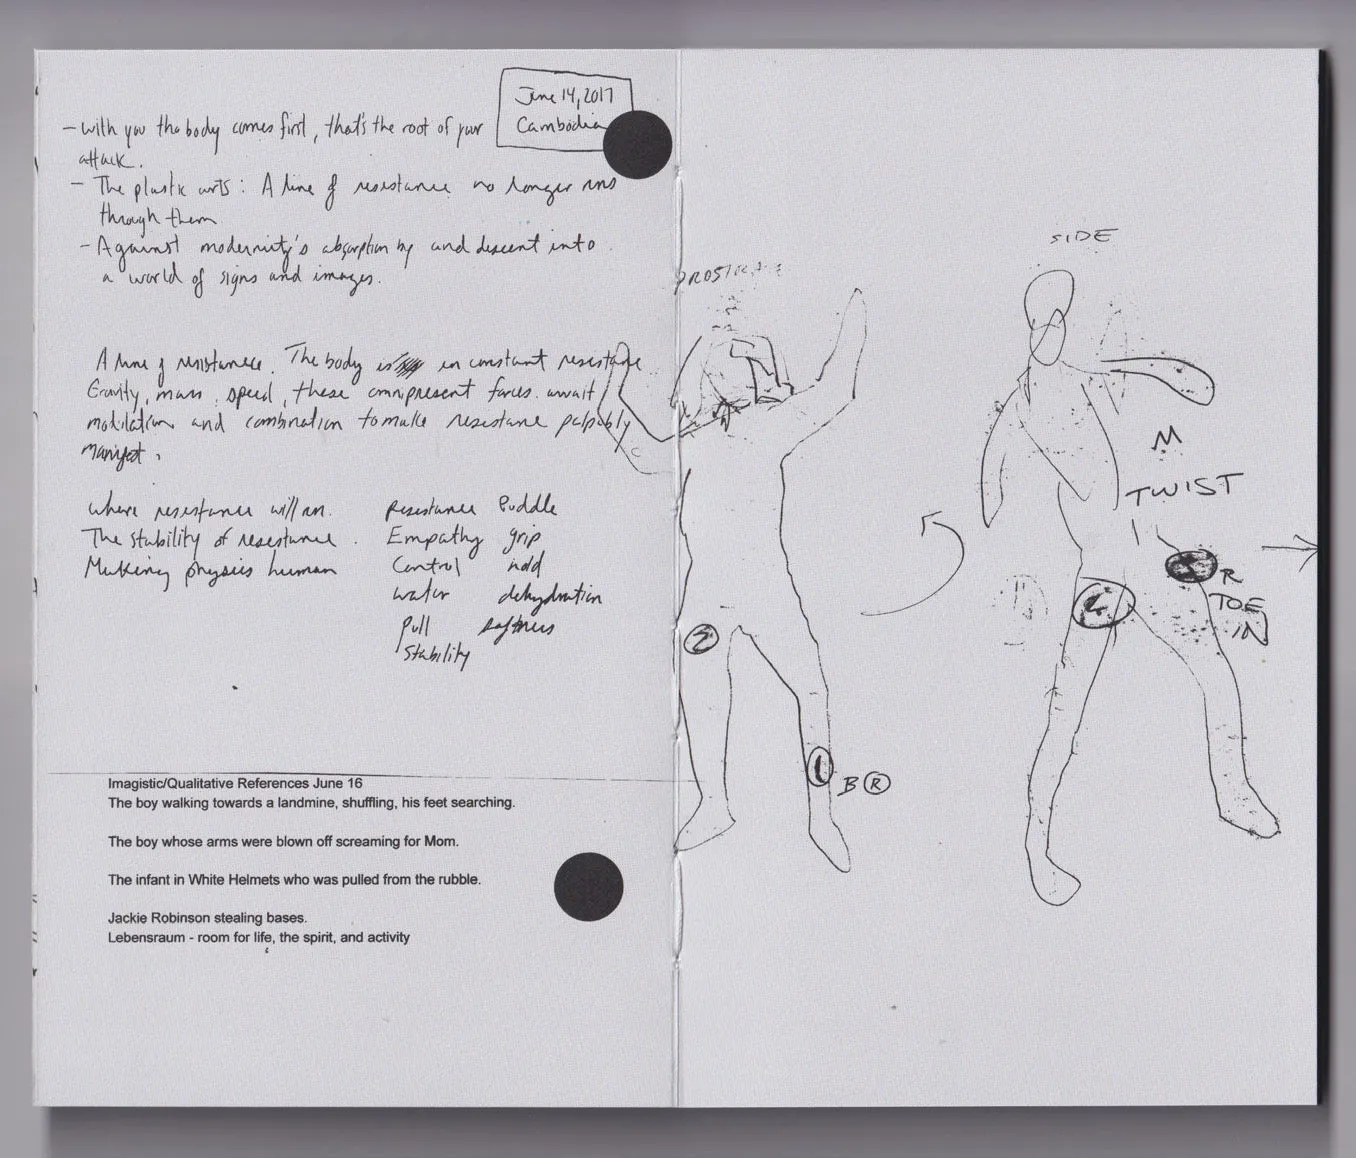 June 14, 2017
Cambodia
- With you the body comes first, that's the root of your
attack.
- The plastic arts: A line of resistance no longer runs
through them
- Against modernity's absorption by and descent into
a world of signs and images.
A line of resistance. The body is in constant resistance
Gravity, mass, speed, these omnipresent forces await
modulation and combination to make resistance palpably
manifest.
where resistance will run.
The stability of resistance.
Making physics human
Resistance
Empathy
Control
water
Pull
Stability
Puddle
grip
hold
dehydration
softness
Imagistic/Qualitative References June 16
The boy walking towards a landmine, shuffling, his feet searching.
The boy whose arms were blown off screaming for Mom.
The infant in White Helmets who was pulled from the rubble.
Jackie Robinson stealing bases.
Lebensraum - room for life, the spirit, and activity
2
1
B R
SIDE
M
TWIST
R
TOE
IN